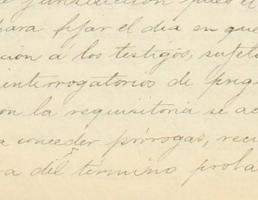 jurisdicción pues
para fijar el dia en que
ción á los testigos, sujeta
interrogatorios de preg
on la requisitoria se ac
a conceder prórrogas, recu
ra del término proba